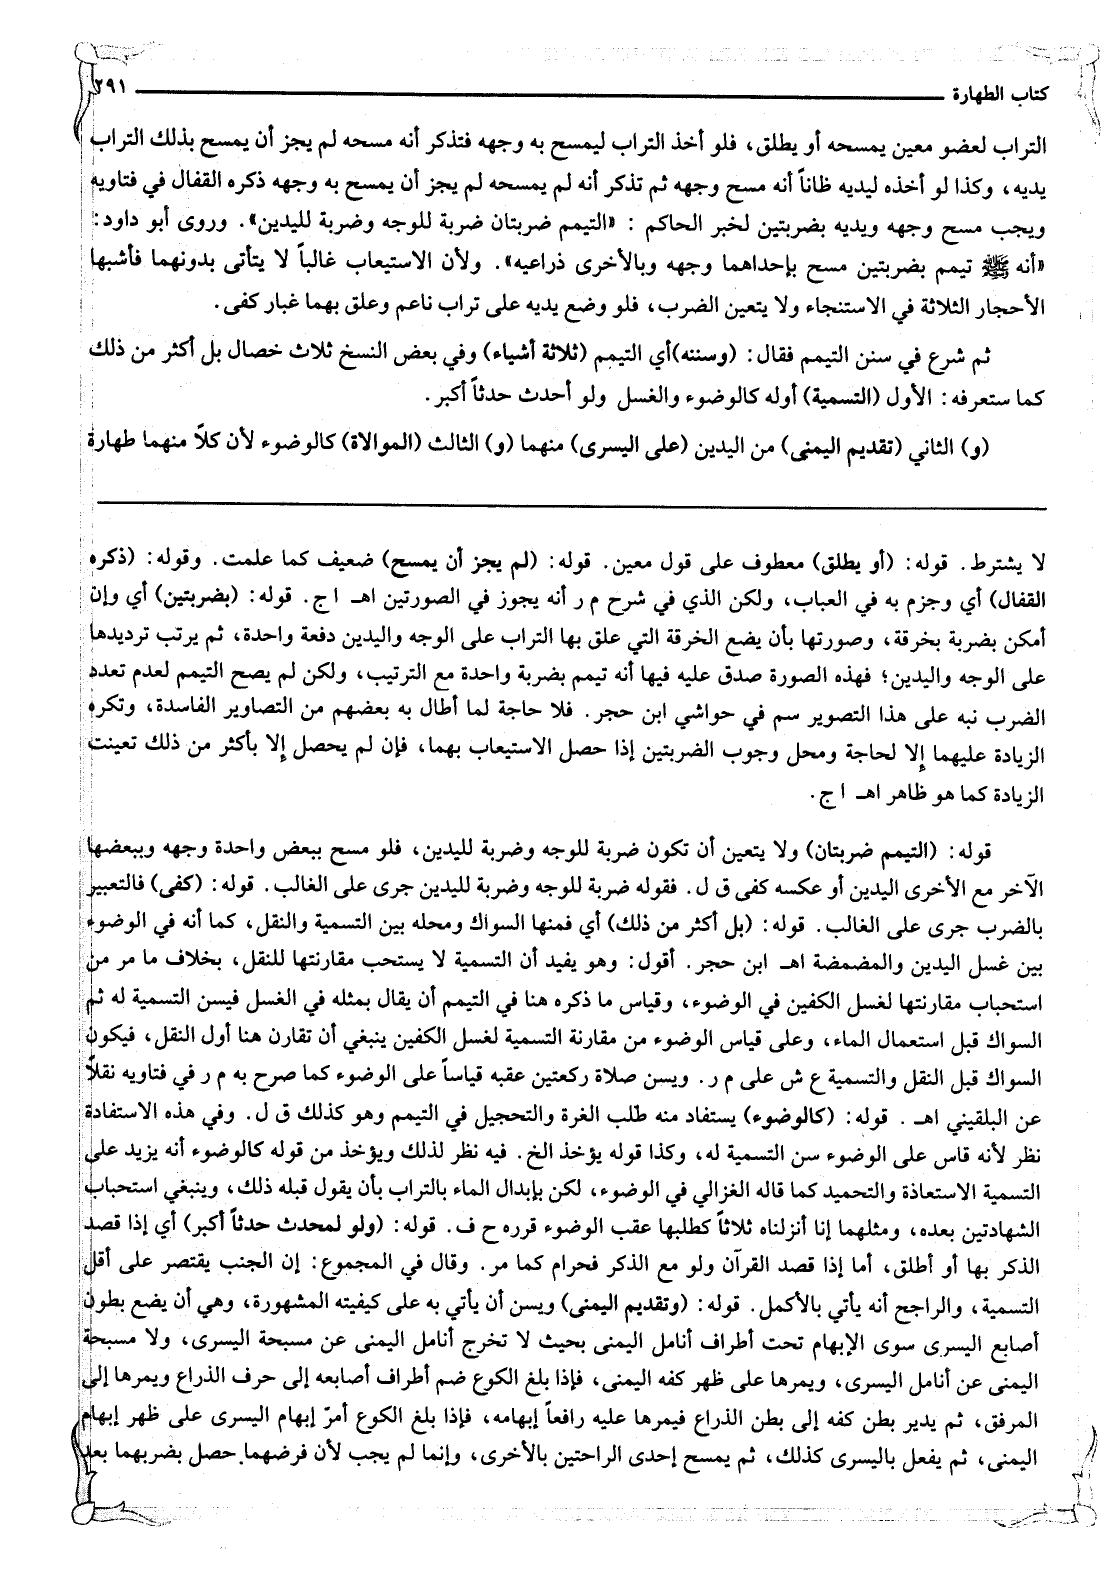 كتاب الطهارة ٢٩١
التراب لعضو معين يمسحه أو يطلق، فلو أخذ التراب ليمسح به وجهه فتذكر أنه مسحه لم يجز أن يمسح بذلك التراب
يديه، وكذا لو أخذه ليديه ظاناً أنه مسح وجهه ثم تذكر أنه لم يمسحه لم يجز أن يمسح به وجهه ذكره القفال في فتاويه
ويجب مسح وجهه ويديه بضربتين لخبر الحاكم : «التيمم ضربتان ضربة للوجه وضربة لليدين». وروى أبو داود:
«أنه ﷺ تيمم بضربتين مسح بإحداهما وجهه وبالأخرى ذراعيه». ولأن الاستيعاب غالباً لا يتأتى بدونهما فأشبها
الأحجار الثلاثة في الاستنجاء ولا يتعين الضرب، فلو وضع يديه على تراب ناعم وعلق بهما غبار كفى.
ثم شرع في سنن التيمم فقال: (وسننه)أي التيمم (ثلاثة أشياء) وفي بعض النسخ ثلاث خصال بل أكثر من ذلك
كما ستعرفه: الأول (التسمية) أوله كالوضوء والغسل ولو أحدث حدثاً أكبر.
(و) الثاني (تقديم اليمنى) من اليدين (على اليسرى) منهما (و) الثالث (الموالاة) كالوضوء لأن كلاً منهما طهارة
لا يشترط. قوله: (أو يطلق) معطوف على قول معين. قوله: (لم يجز أن يمسح) ضعيف كما علمت. وقوله: (ذكره
القفال) أي وجزم به في العباب، ولكن الذي في شرح م ر أنه يجوز في الصورتين اهـ ا ج. قوله: (بضربتين) أي وإن
أمكن بضربة بخرقة، وصورتها بأن يضع الخرقة التي علق بها التراب على الوجه واليدين دفعة واحدة، ثم يرتب ترديدها
على الوجه واليدين؛ فهذه الصورة صدق عليه فيها أنه تيمم بضربة واحدة مع الترتيب، ولكن لم يصح التيمم لعدم تعدد
الضرب نبه على هذا التصوير سم في حواشي ابن حجر. فلا حاجة لما أطال به بعضهم من التصاوير الفاسدة، وتكره
الزيادة عليهما إلا لحاجة ومحل وجوب الضربتين إذا حصل الاستيعاب بهما، فإن لم يحصل إلا بأكثر من ذلك تعينت
الزيادة كما هو ظاهر اهـ ا ج.
قوله: (التيمم ضربتان) ولا يتعين أن تكون ضربة للوجه وضربة لليدين، فلو مسح ببعض واحدة وجهه وببعضها
الآخر مع الأخرى اليدين أو عكسه كفى ق ل. فقوله ضربة للوجه وضربة لليدين جرى على الغالب. قوله: (كفى) فالتعبير
بالضرب جرى على الغالب. قوله: (بل أكثر من ذلك) أي فمنها السواك ومحله بين التسمية والنقل، كما أنه في الوضوء
بين غسل اليدين والمضمضة اهـ ابن حجر. أقول: وهو يفيد أن التسمية لا يستحب مقارنتها للنقل، بخلاف ما مر من
استحباب مقارنتها لغسل الكفين في الوضوء، وقياس ما ذكره هنا في التيمم أن يقال بمثله في الغسل فيسن التسمية له ثم
السواك قبل استعمال الماء، وعلى قياس الوضوء من مقارنة التسمية لغسل الكفين ينبغي أن تقارن هنا أول النقل، فيكون
السواك قبل النقل والتسمية ع ش على م ر. ويسن صلاة ركعتين عقبه قياساً على الوضوء كما صرح به م ر في فتاويه نقلاً
عن البلقيني اهـ. قوله: (كالوضوء) يستفاد منه طلب الغرة والتحجيل في التيمم وهو كذلك ق ل. وفي هذه الاستفادة
نظر لأنه قاس على الوضوء سن التسمية له، وكذا قوله يؤخذ الخ. فيه نظر لذلك ويؤخذ من قوله كالوضوء أنه يزيد على
التسمية الاستعاذة والتحميد كما قاله الغزالي في الوضوء، لكن بإبدال الماء بالتراب بأن يقول قبله ذلك، وينبغي استحباب
الشهادتين بعده، ومثلهما إنا أنزلناه ثلاثاً كطلبها عقب الوضوء قرره ح ف. قوله: (ولو لمحدث حدثاً أكبر) أي إذا قصد
الذكر بها أو أطلق، أما إذا قصد القرآن ولو مع الذكر فحرام كما مر. وقال في المجموع: إن الجنب يقتصر على أقل
التسمية، والراجح أنه يأتي بالأكمل. قوله: (وتقديم اليمنى) ويسن أن يأتي به على كيفيته المشهورة، وهي أن يضع بطون
أصابع اليسرى سوى الإبهام تحت أطراف أنامل اليمنى بحيث لا تخرج أنامل اليمنى عن مسبحة اليسرى، ولا مسبحة
اليمنى عن أنامل اليسرى، ويمرها على ظهر كفه اليمنى، فإذا بلغ الكوع ضم أطراف أصابعه إلى حرف الذراع ويمرها إلى
المرفق، ثم يدير بطن كفه إلى بطن الذراع فيمرها عليه رافعاً إبهامه، فإذا بلغ الكوع أمرّ إبهام اليسرى على ظهر إبهام
اليمنى، ثم يفعل باليسرى كذلك، ثم يمسح إحدى الراحتين بالأخرى، وإنما لم يجب لأن فرضهما حصل بضربهما بعد